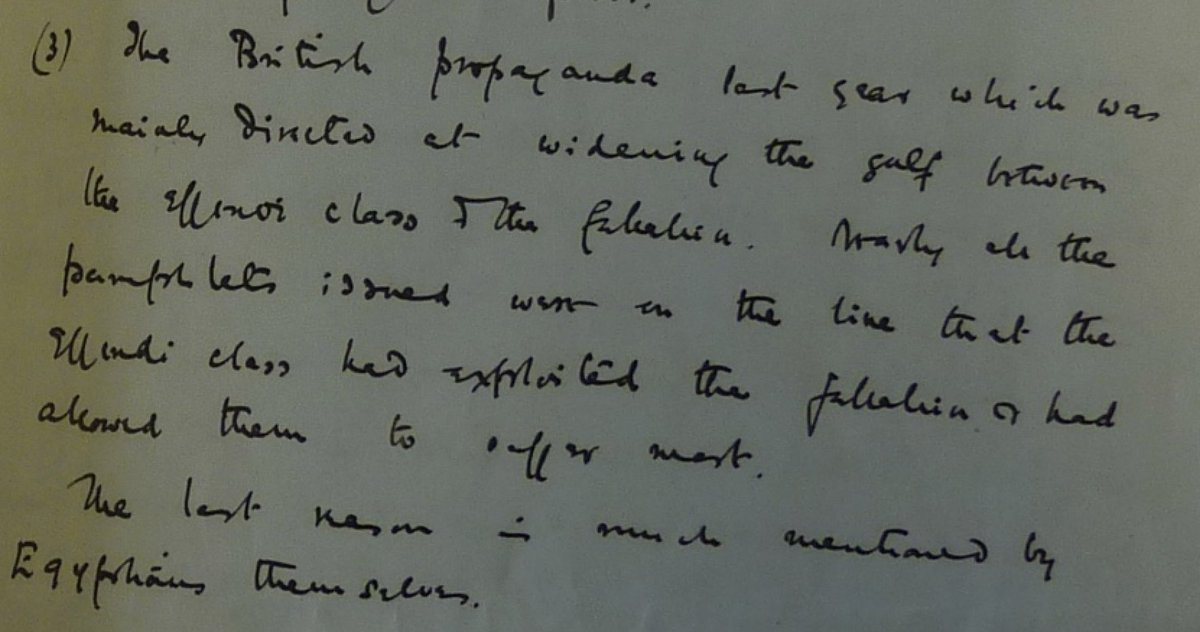 (3) The British propaganda last year which was
mainly directed at widening the gulf between
the Effendi class & the fallahin. Nearly all the
pamphlets issued went on the line that the
Effendi class had exploited the fallahin & had
allowed them to suffer most.
The last reason is much mentioned by
Egyptians themselves.